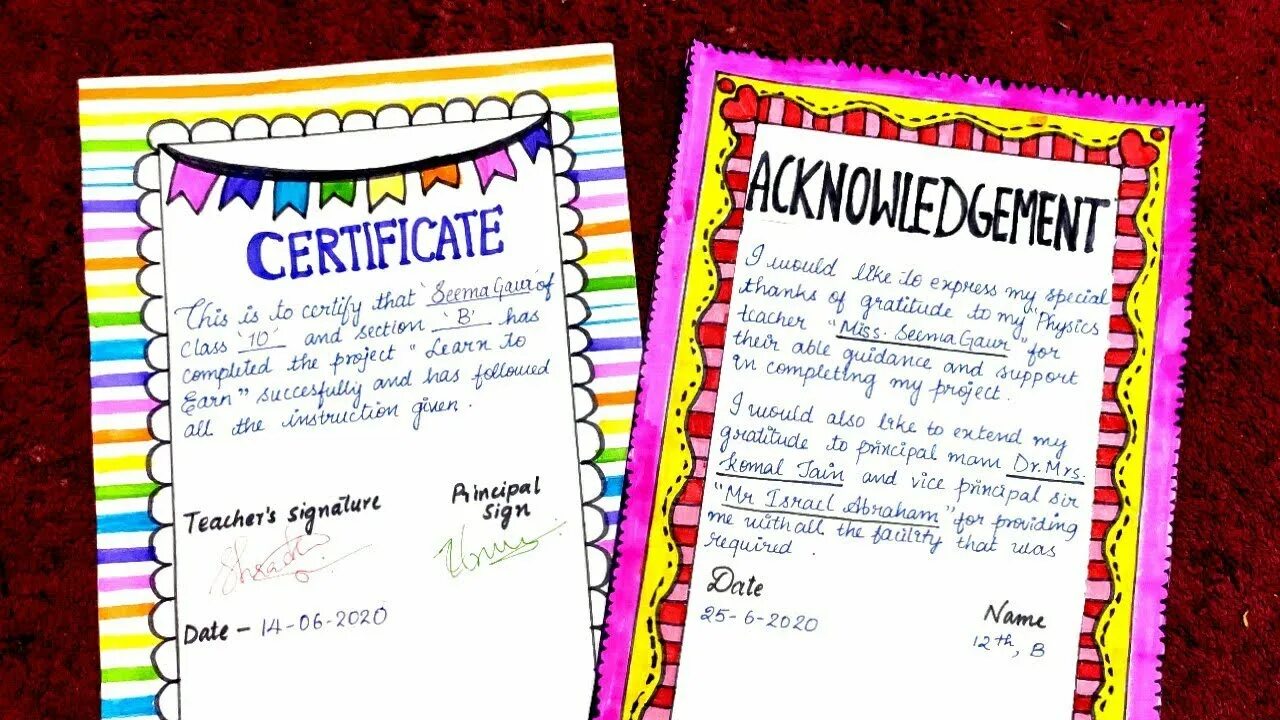 CERTIFICATE
This is to certify that 'Seema Gaur' of
Class '10' and section 'B' has
completed the project "Learn to
Earn" succesfully and has followed
all the instruction given.
Teacher's signature
Principal
Sign
Date - 14-06-2020
ACKNOWLEDGEMENT
I would like to express my special
thanks of gratitude to my "Physics
teacher "Miss. Seema Gaur" for
their able guidance and support
in completing my project.
I would also like to extend my
gratitude to principal mam Dr. Mrs.
Komal Jain and vice principal sir
"Mr Israel Abraham" for providing
me with all the facility that was
required.
Date
25-6-2020
Name
12th, B